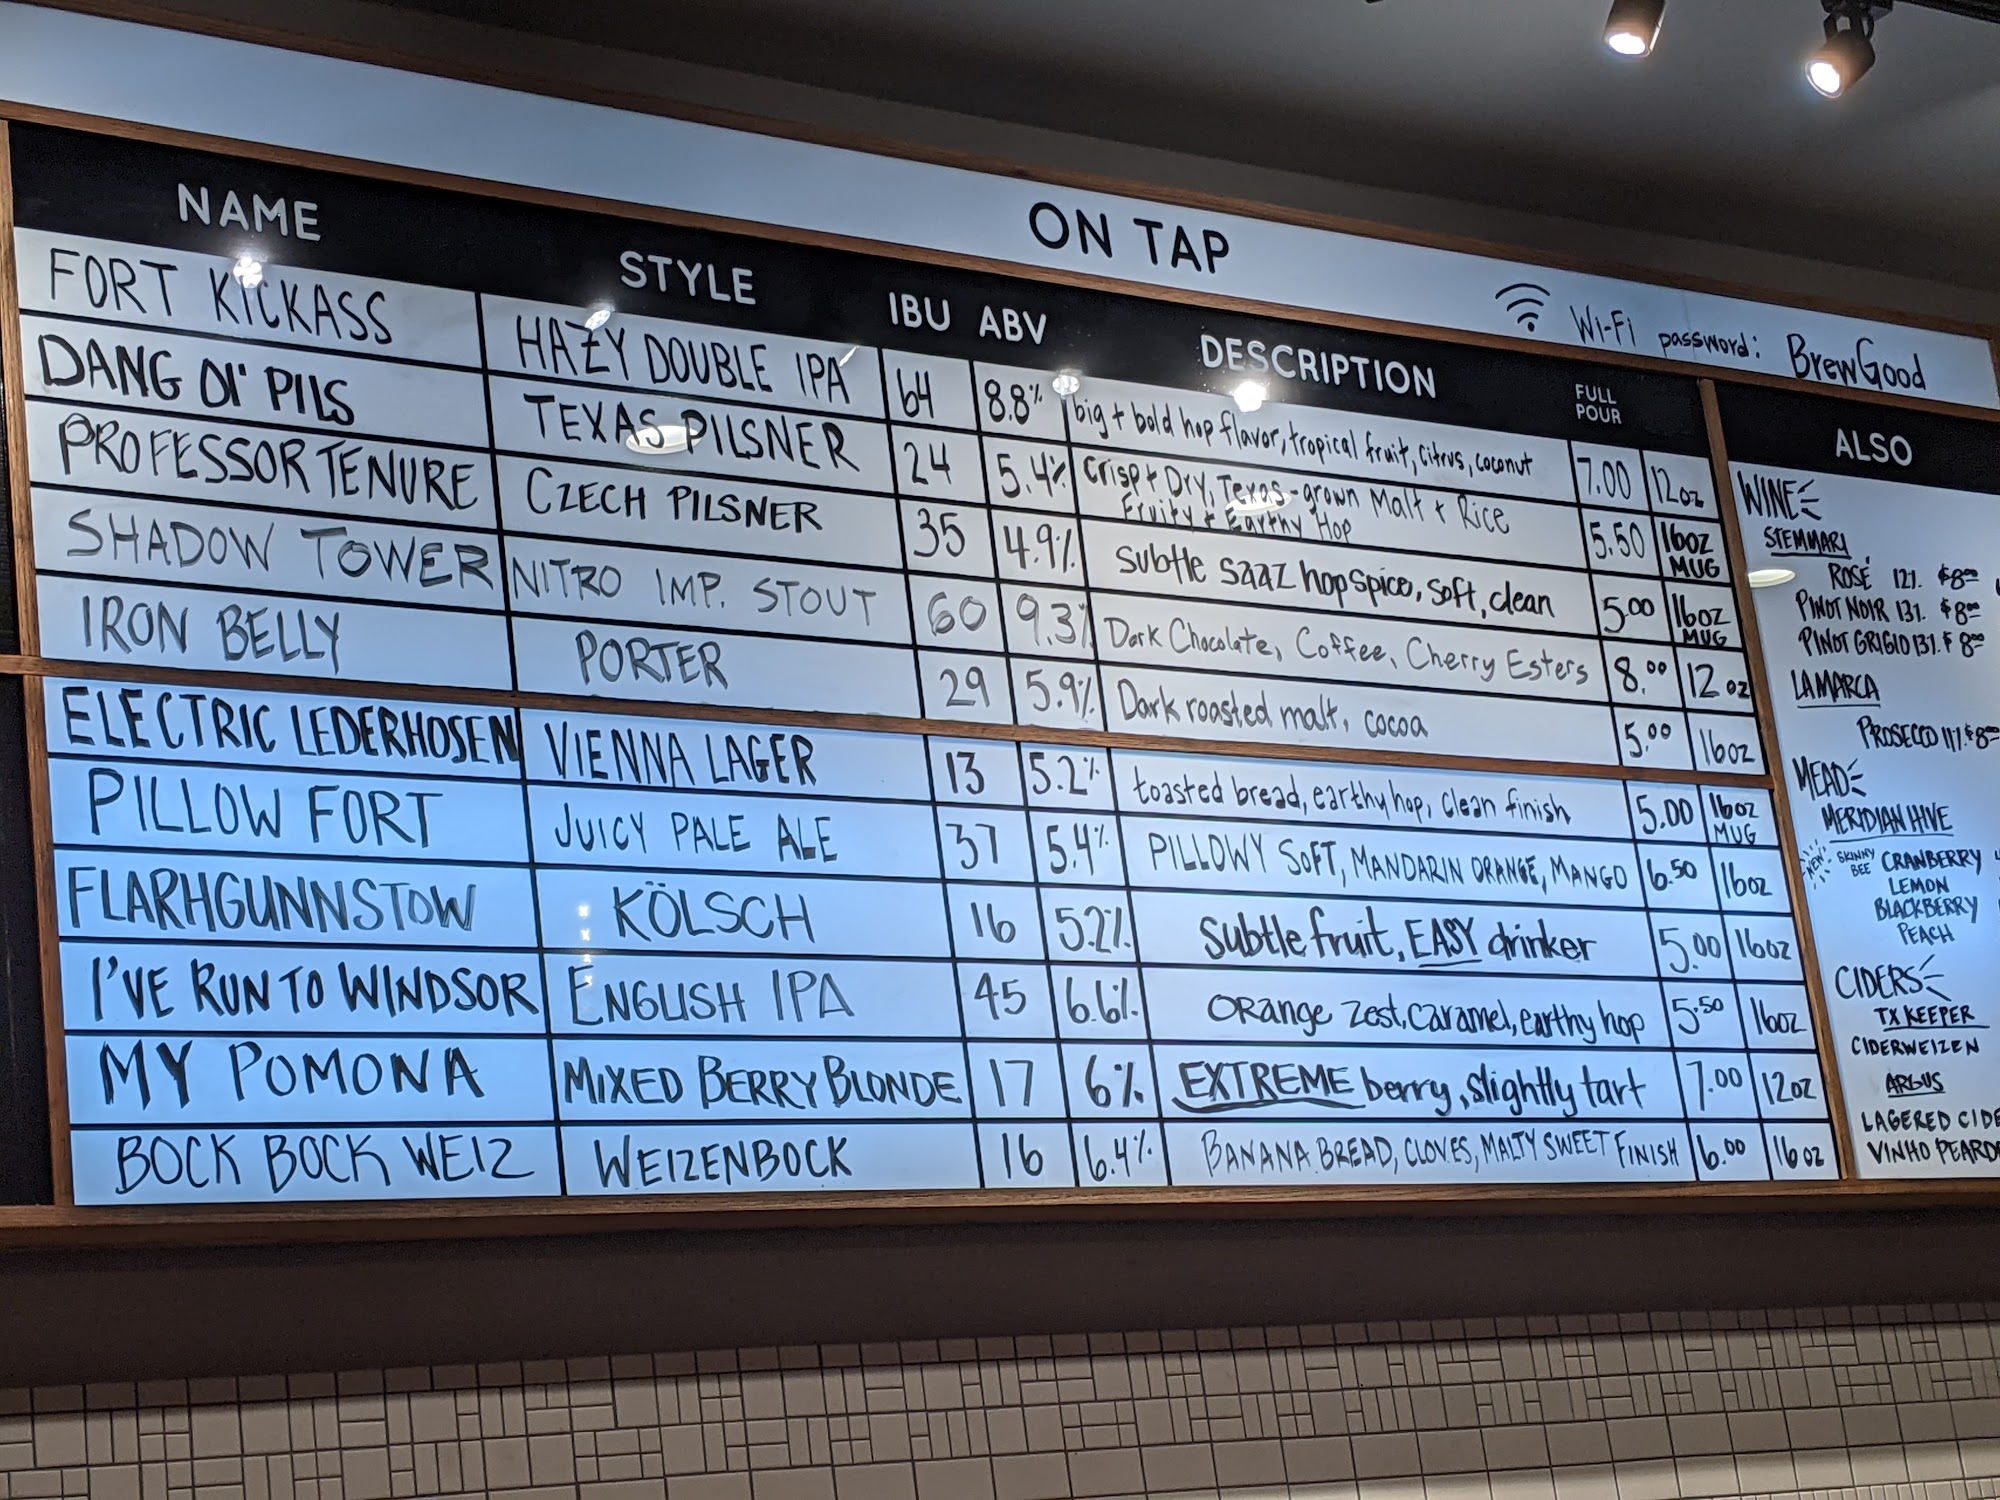 ON TAP
Wi-Fi password: BrewGood
NAME STYLE IBU ABV DESCRIPTION FULL POUR
FORT KICKASS HAZY DOUBLE IPA 64 8.8% big + bold hop flavor, tropical fruit, citrus, coconut 7.00 12oz
DANG Ol' PILS TEXAS PILSNER 24 5.4% Crisp + Dry, Texas-grown Malt + Rice
Fruity + Earthy Hop 5.50 16oz MUG
PROFESSOR TENURE CZECH PILSNER 35 4.9% subtle saaz hop spice, soft, clean 5.00 16oz MUG
SHADOW TOWER NITRO IMP. STOUT 60 9.3% Dark Chocolate, Coffee, Cherry Esters 8.00 12 oz
IRON BELLY PORTER 29 5.9% Dark roasted malt, cocoa 5.00 16oz
ELECTRIC LEDERHOSEN VIENNA LAGER 13 5.2% toasted bread, earthy hop, clean finish 5.00 16oz MUG
PILLOW FORT JUICY PALE ALE 37 5.4% PILLOWY SOFT, MANDARIN ORANGE, MANGO 6.50 16oz
FLARHGUNNSTOW KÖLSCH 16 5.2% Subtle fruit, EASY drinker 5.00 16oz
I'VE RUN TO WINDSOR ENGLISH IPA 45 6.6% orange zest, caramel, earthy hop 5.50 16oz
MY POMONA MIXED BERRY BLONDE 17 6% EXTREME berry, slightly tart 7.00 12oz
BOCK BOCK WEIZ WEIZENBOCK 16 6.4% BANANA BREAD, CLOVES, MALTY SWEET FINISH 6.00 16oz
ALSO
WINE
STEMMARI
ROSÉ 12%. $8.00
PINOT NOIR 13%. $8.00
PINOT GRIGIO 13%. $8.00
LAMARCA
PROSECCO 11% $8.00
MEAD
MERIDIAN HIVE
NEW SKINNY BEE CRANBERRY
LEMON
BLACKBERRY
PEACH
CIDERS
TX KEEPER
CIDERWEIZEN
ARGUS
LAGERED CIDE
VINHO PEARD